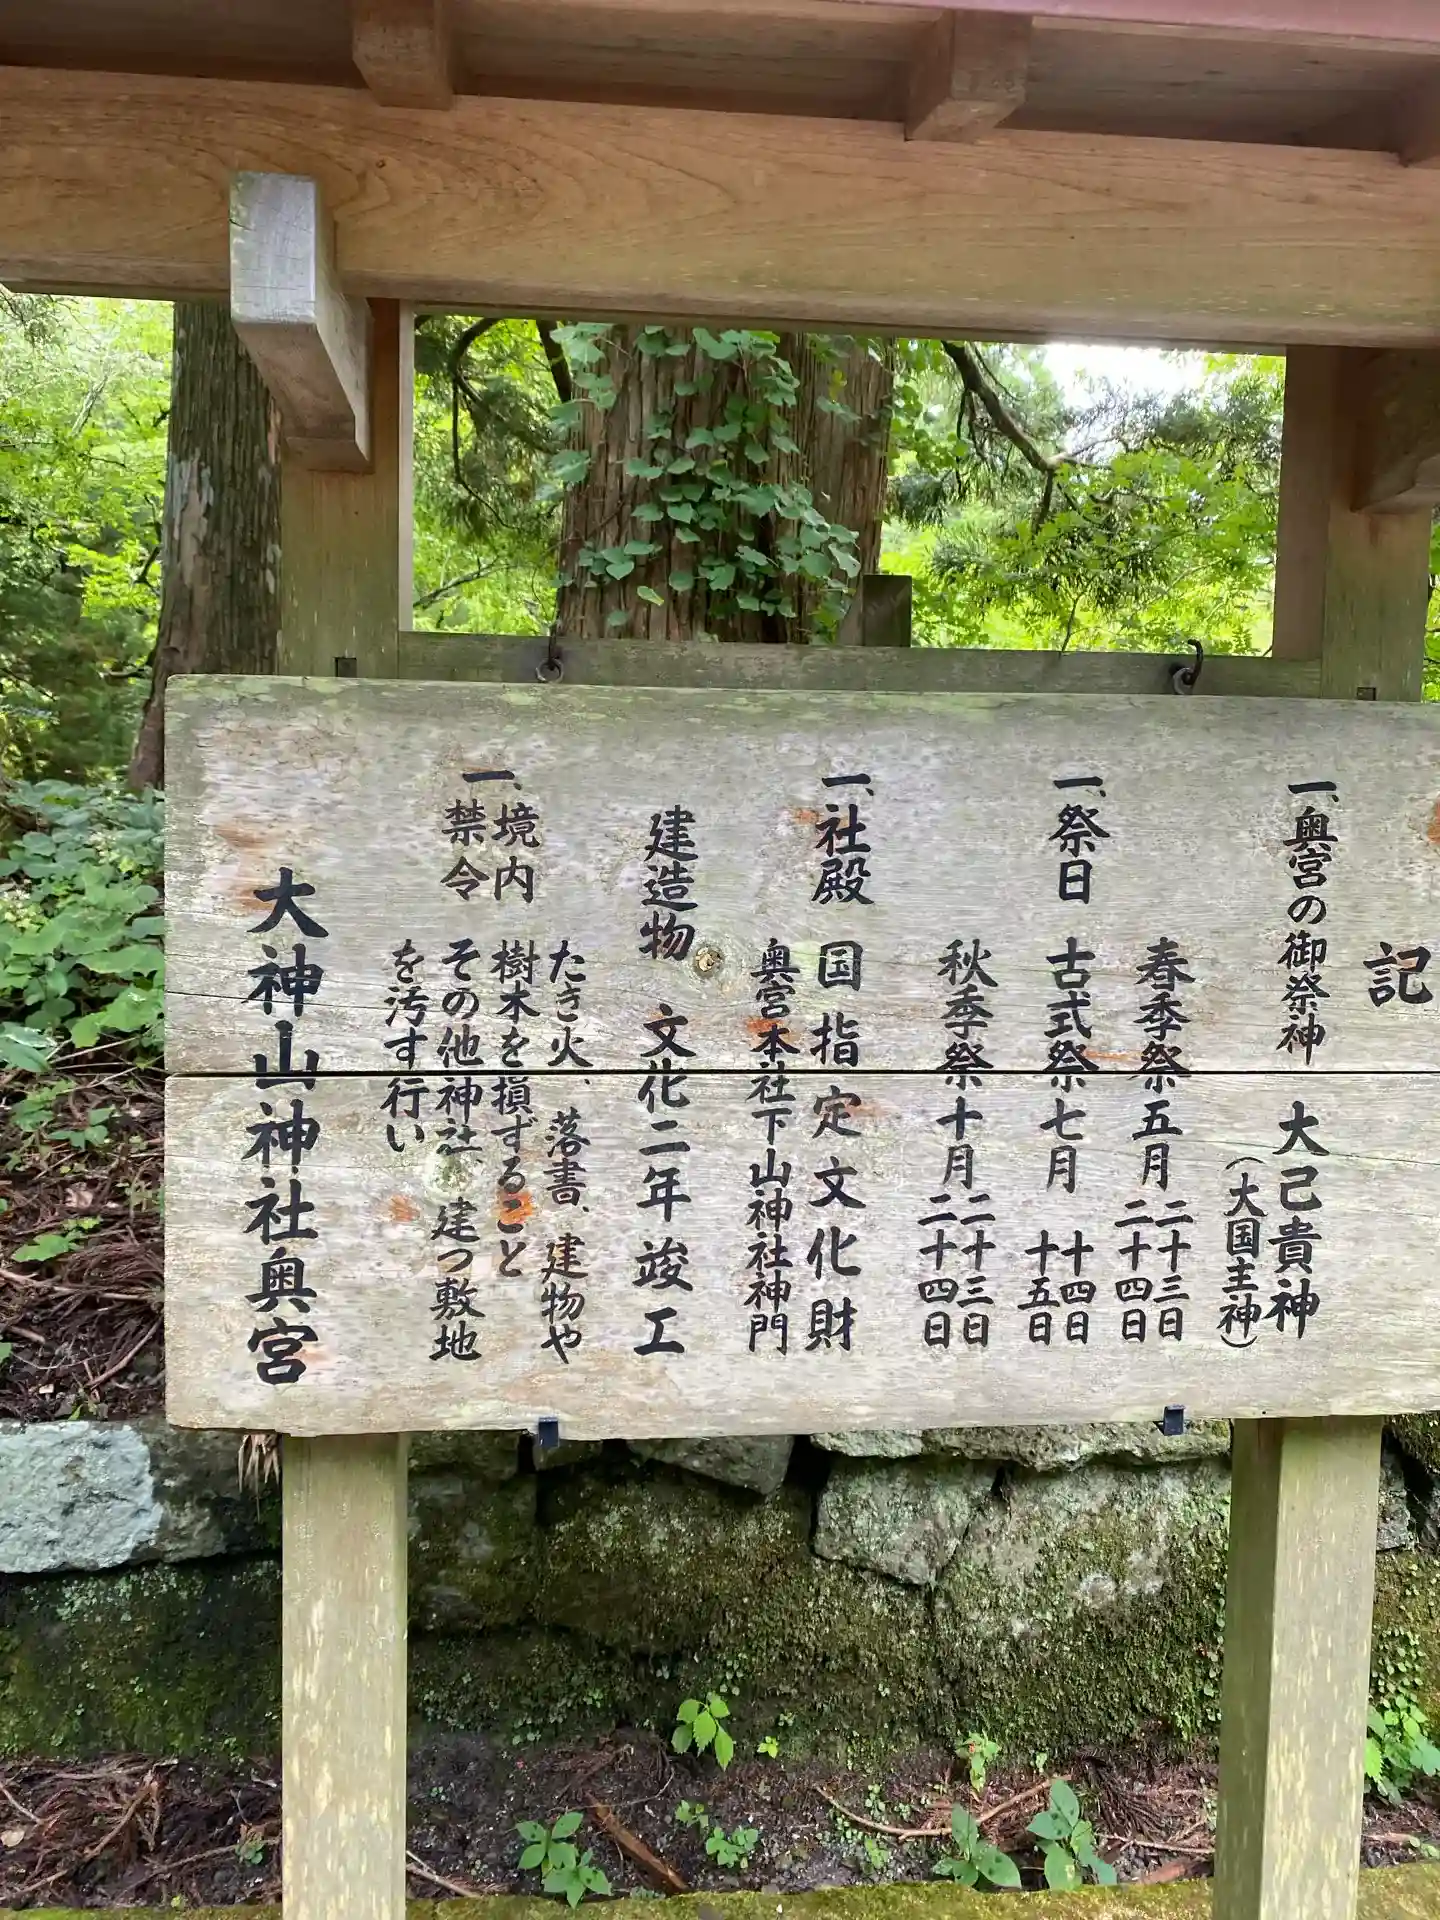 記
一、奥宮の御祭神 大己貴神
(大国主神)
春季祭 五月 二十三日
二十四日
一、祭日 古式祭 七月 十四日
十五日
秋季祭 十月 二十三日
二十四日
一、社殿 国指定文化財
奥宮本社下山神社神門
建造物 文化二年竣工
一、境内
禁令
たき火、落書、建物や
樹木を損ずること
その他神社、建つ敷地
を汚す行い
大神山神社奥宮